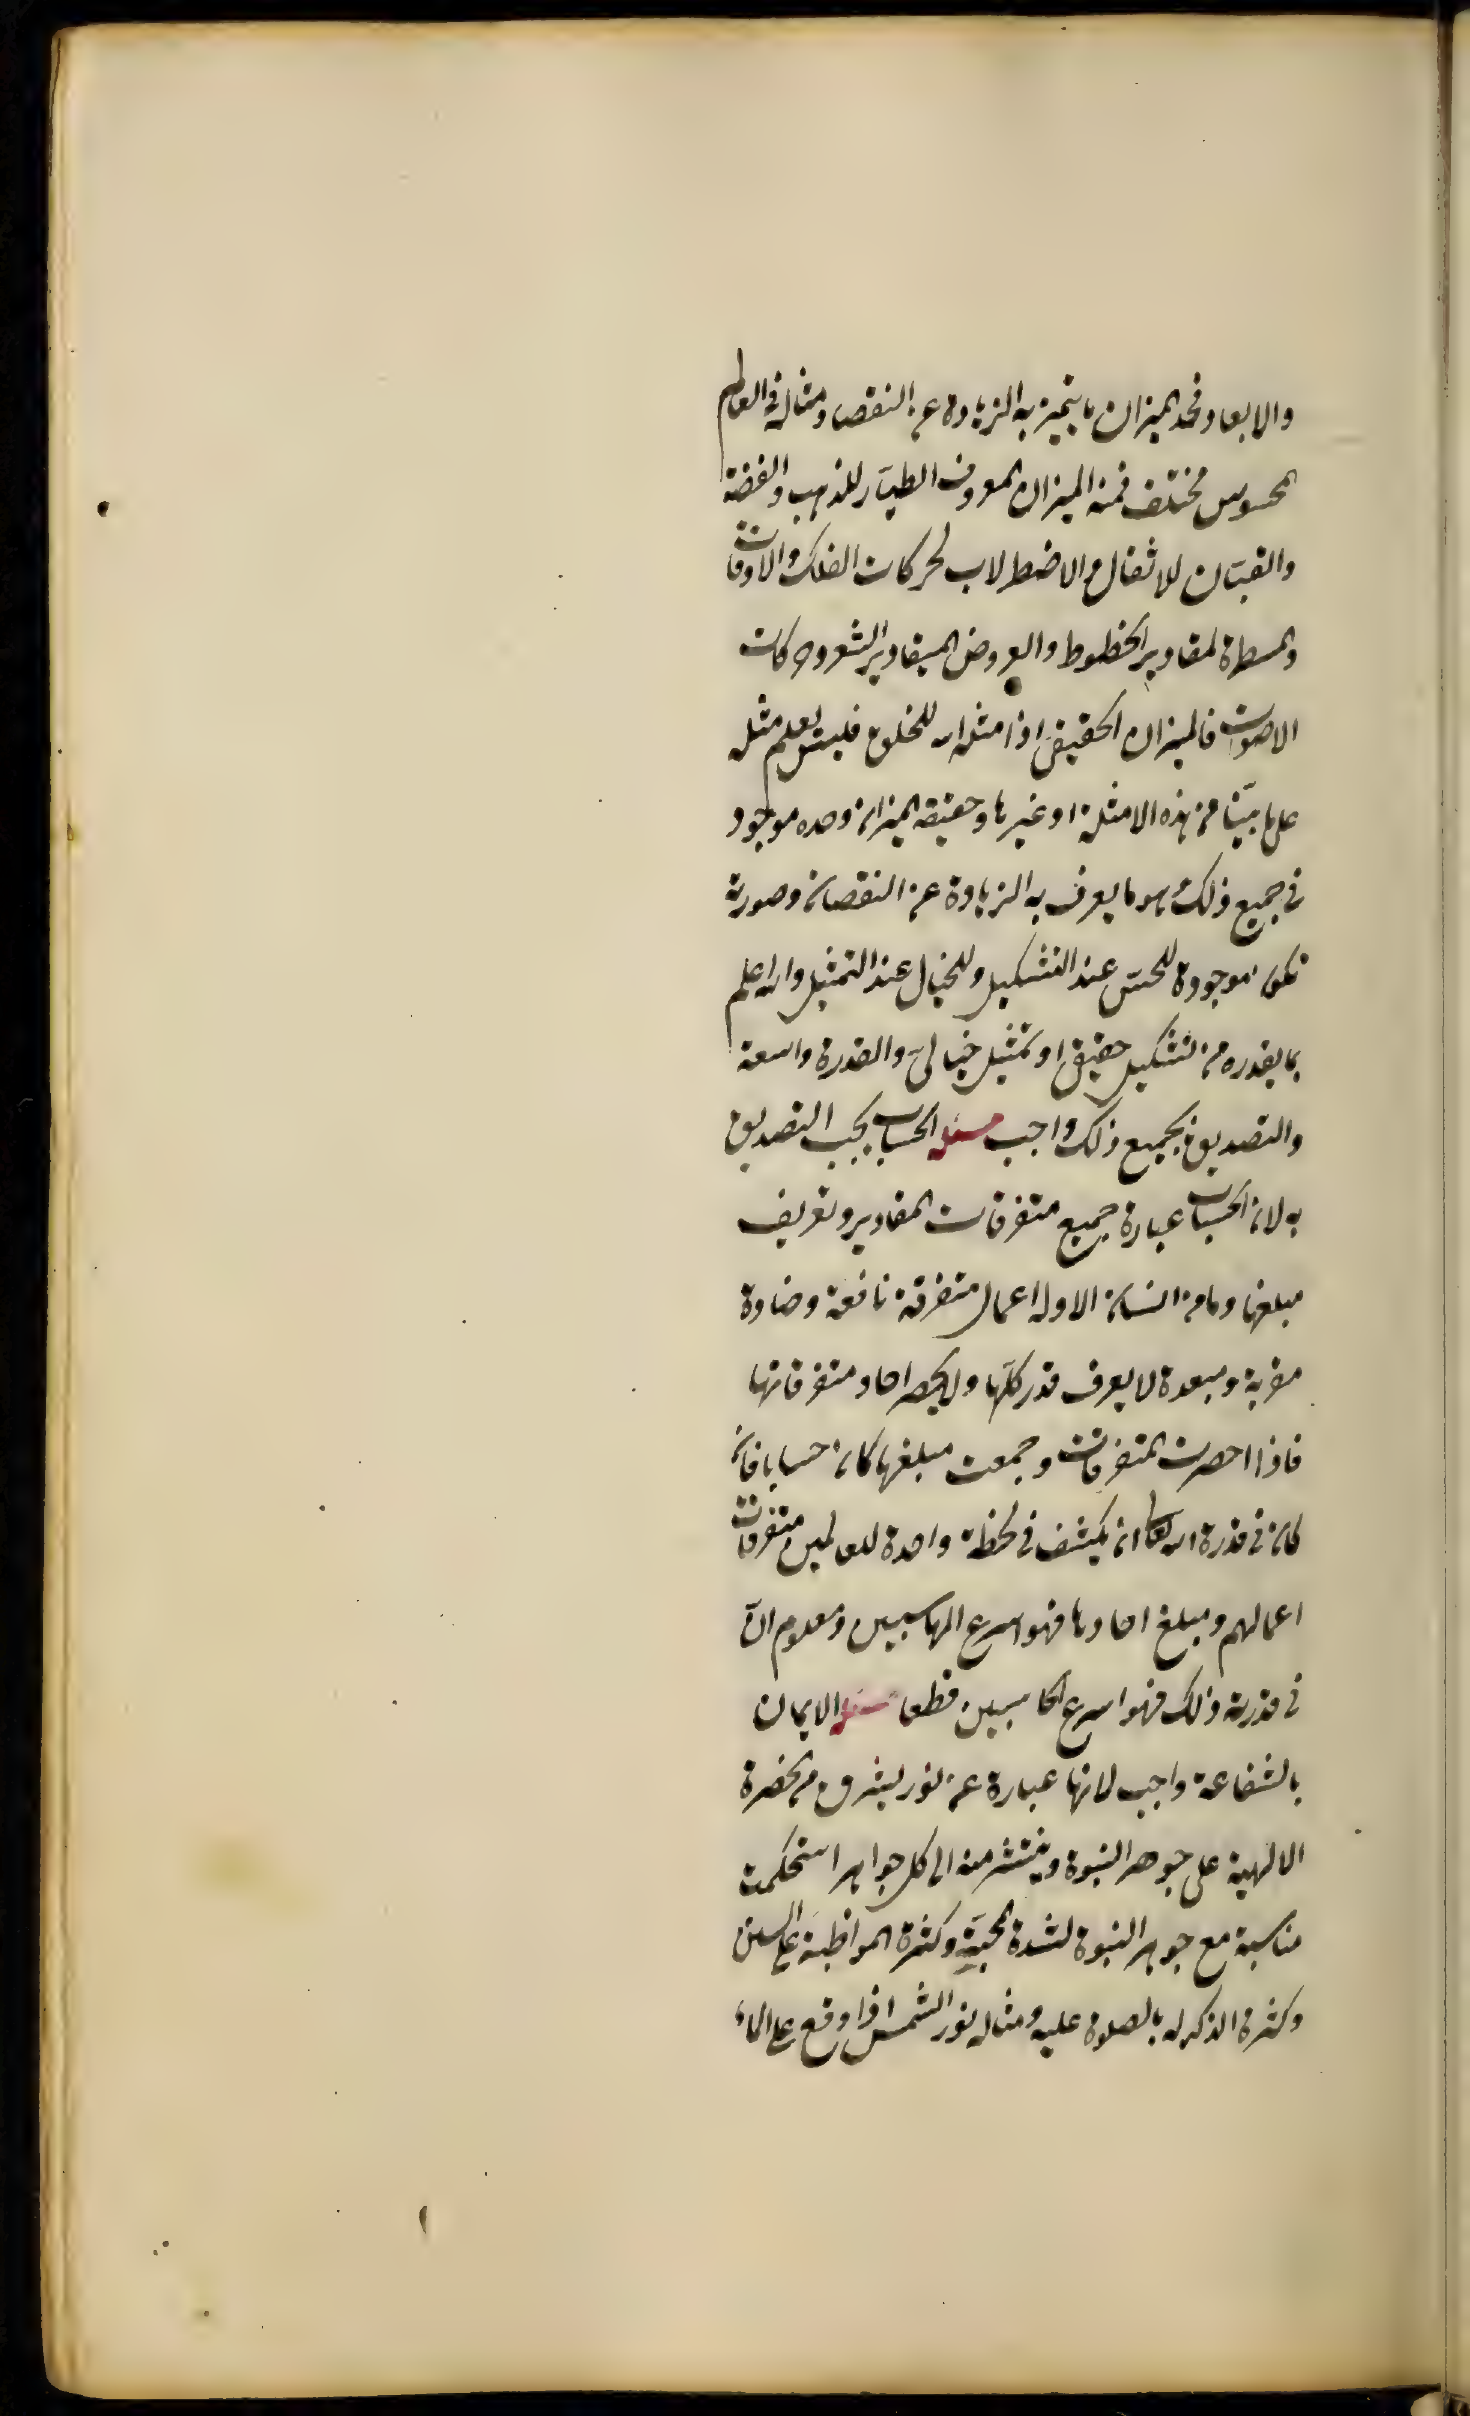 والابعاد فحد الميزان ما يتميز به الزيادة عن النقصا ومثاله فى العالم
المحسوس مختلف فمنه الميزان المعروف الطيّار للذهب والفضة
والقبّان للاثقال والاضطرلاب لحركات الفلك والاوقات
والمسطرة لمقادير الخطوط والعروض لميقادير الشعر وحركات
الاصوات فالميزان الحقيقى اذا مثله الله للخلق فليس يعلم مثله
على ما بيّنا من هذه الامثلة او غيرها وحقيقة الميزان وحده موجود
فى جميع ذلك وهو ما يعرف به الزيادة عن النقصان وصورته
تكون موجودة للحسّ عند التشكيل وللخيال عند التمثيل والله اعلم
بما يقدره من تشكيل حقيقى او تمثيل خيالىّ والقدرة واسعة
والتصديق بجميع ذلك واجب مسئله الحساب يجب التصديق
به لان الحساب عبارة جميع متفرقات المقادير وتعريف
مبلغها وما من انسان الا وله اعمال متفرقة نافعة وضادة
مقربة ومبعدة لا يعرف قدر كلّها ولا يحصر احاد متفرقاتها
فاذا احصرت المتفرقات وجمعت مبلغها كان حسابا فان
كان فى قدرة الله تعالى ان يكشف فى لحظة واحدة للعالمين متفرقات
اعمالهم ومبلغ احادها فهو اسرع الحاسبين ومعلوم انّ
فى قدرته ذلك فهو اسرع الحاسبين قطعا مسئله الايمان
بالشفاعة واجب لانها عبارة عن نور يشرق من الحضرة
الالهية على جوهر النبوة وينتشر منه الى كل جواهر استحكمت
مناسبة مع جوهر النبوة لشدة المحبّة وكثرة المواظبة على السنن
وكثرة الذكر له بالصلوة عليه ومثاله نور الشمس اذا وقع على الماء